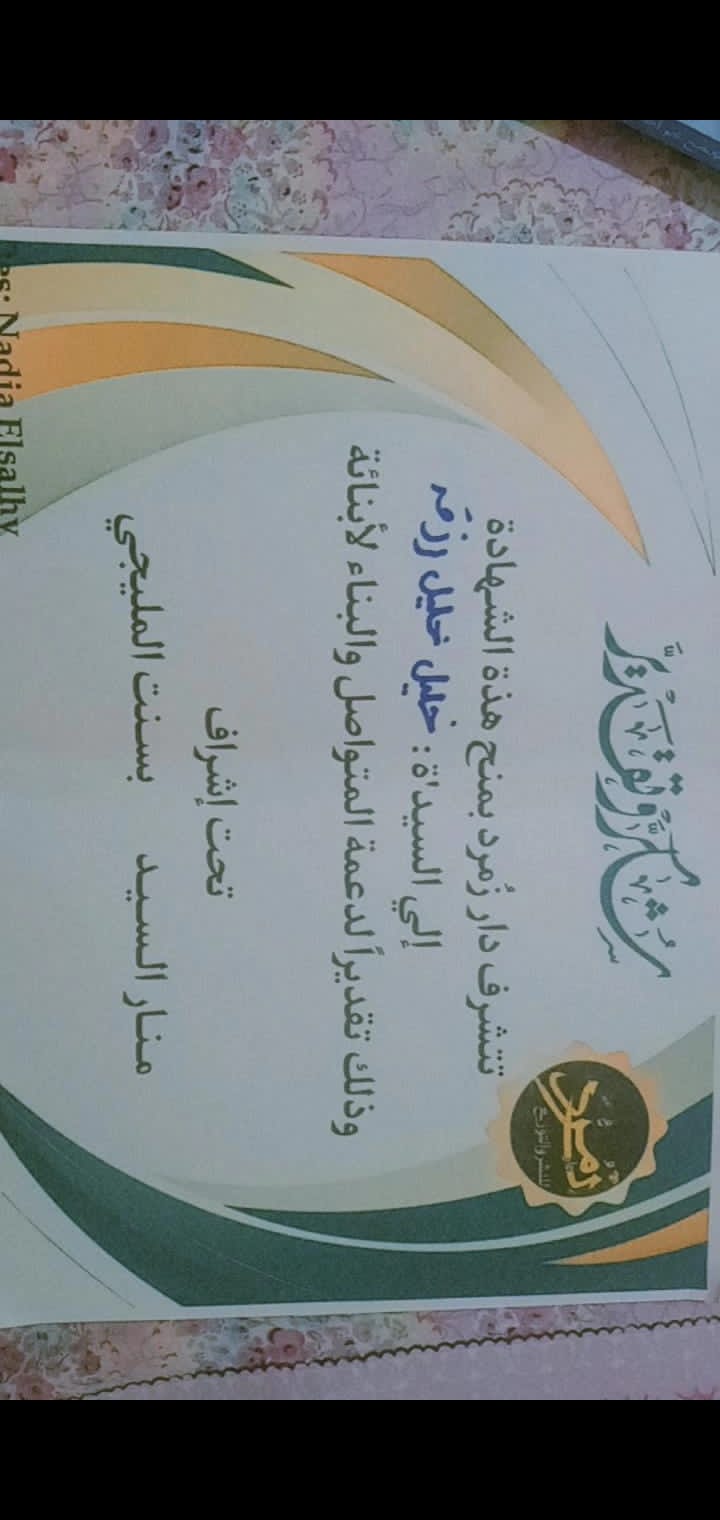 شكر وتقدير
زمرد
للنشر والتوزيع
تتشرف دار زُمرد بمنح هذة الشهادة
إلي السيد/ة : خليل خليل رزمه
وذلك تقديراً لدعمة المتواصل والبناء لأبنائة
تحت إشراف
منار السيد بسنت المليجي
es: Nadia Elsalhy